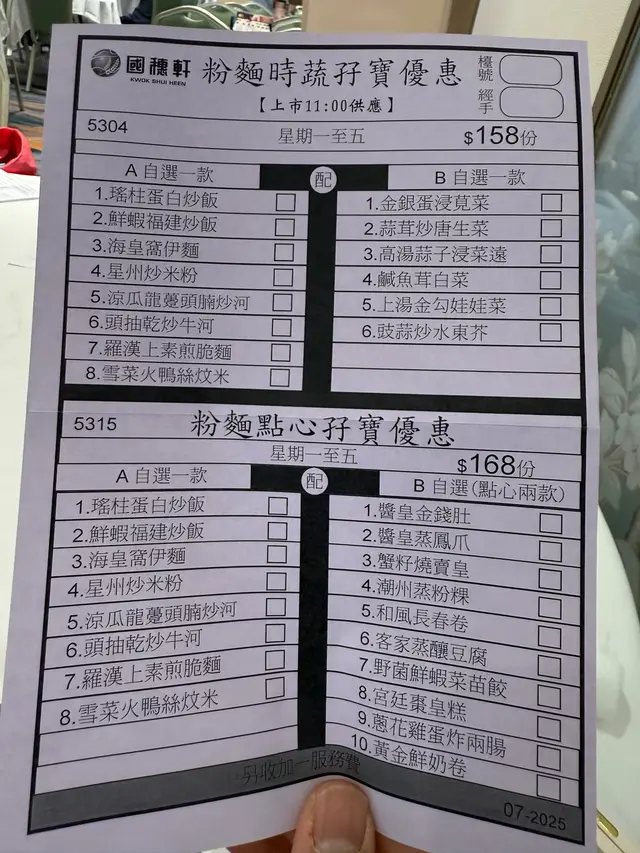 國穗軒
KWOK SHUI HEEN
粉麵時蔬孖寶優惠
檯號
經手
【上市11:00供應】
5304
星期一至五
$158份
A 自選一款
配
B 自選一款
1.瑤柱蛋白炒飯
2.鮮蝦福建炒飯
3.海皇窩伊麵
4.星州炒米粉
5.涼瓜龍躉頭腩炒河
6.頭抽乾炒牛河
7.羅漢上素煎脆麵
8.雪菜火鴨絲炆米
1.金銀蛋浸莧菜
2.蒜茸炒唐生菜
3.高湯蒜子浸菜遠
4.鹹魚茸白菜
5.上湯金勾娃娃菜
6.豉蒜炒水東芥
5315
粉麵點心孖寶優惠
星期一至五
$168份
A 自選一款
配
B 自選(點心兩款)
1.瑤柱蛋白炒飯
2.鮮蝦福建炒飯
3.海皇窩伊麵
4.星州炒米粉
5.涼瓜龍躉頭腩炒河
6.頭抽乾炒牛河
7.羅漢上素煎脆麵
8.雪菜火鴨絲炆米
1.醬皇金錢肚
2.醬皇蒸鳳爪
3.蟹籽燒賣皇
4.潮州蒸粉粿
5.和風長春卷
6.客家蒸釀豆腐
7.野菌鮮蝦菜苗餃
8.宮廷棗皇糕
9.蔥花雞蛋炸兩腸
10.黃金鮮奶卷
另收加一服務費
07-2025